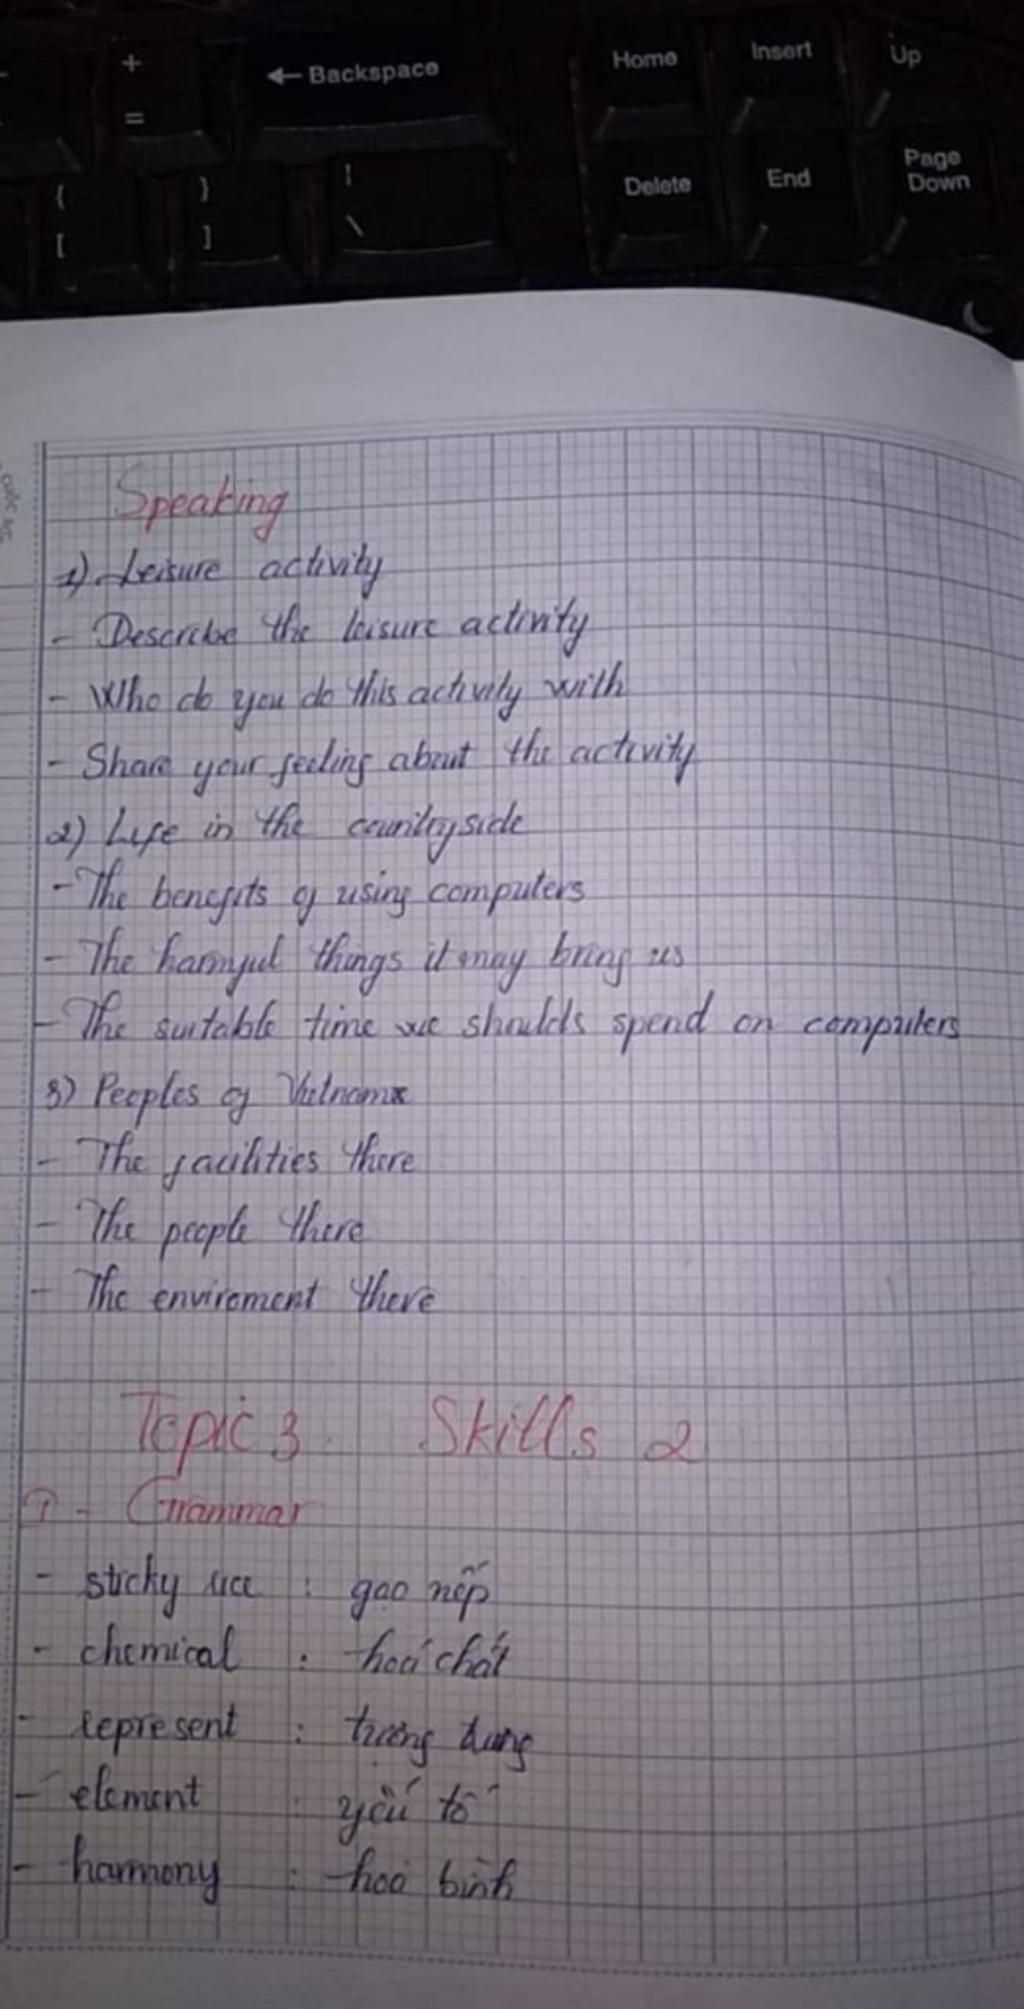 +
=
← Backspace
Home
Insert
Up
{
[
}
]
|
\
Delete
End
Page
Down
Speaking
1) Leisure activity
- Describe the leisure activity
- Who do you do this activity with
- Share your feeling about the activity
2) Life in the countryside
- The benefits of using computers
- The harmful things it may bring us
- The suitable time we shoulds spend on computers
3) Peoples of Vietnam
- The facilities there
- The people there
- The enviroment there
Topic 3 Skills 2
I - Grammar
- sticky rice : gạo nếp
- chemical : hoá chất
- represent : tượng trưng
- element : yếu tố
- harmony : hoà bình